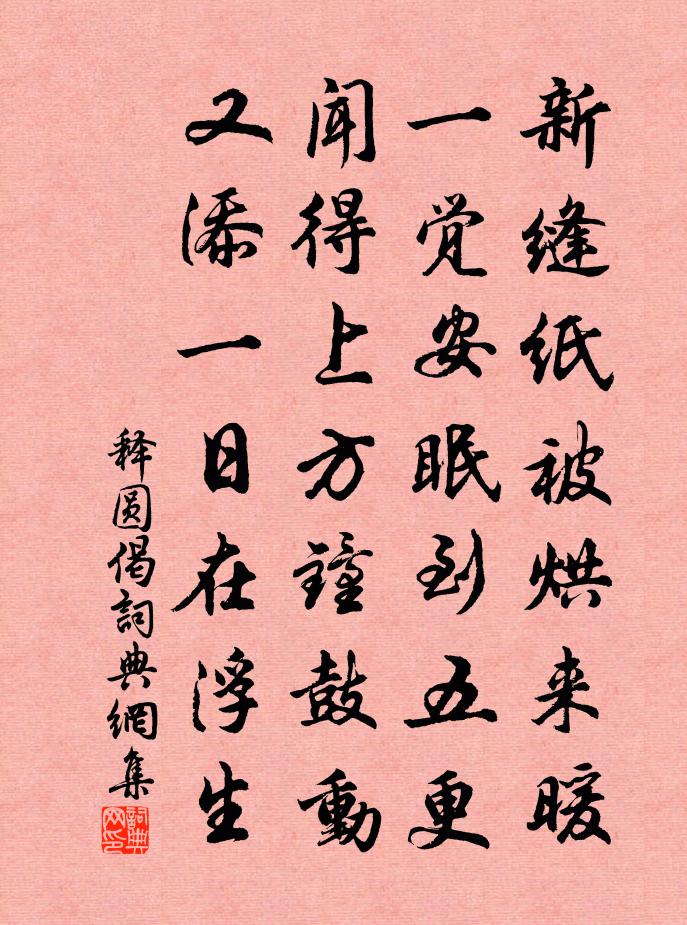 新缝纸被烘来暖
一觉安眠到五更
闻得上方鐘鼓動
又添一日在浮生
释圆偈詞典網集
詞典网印